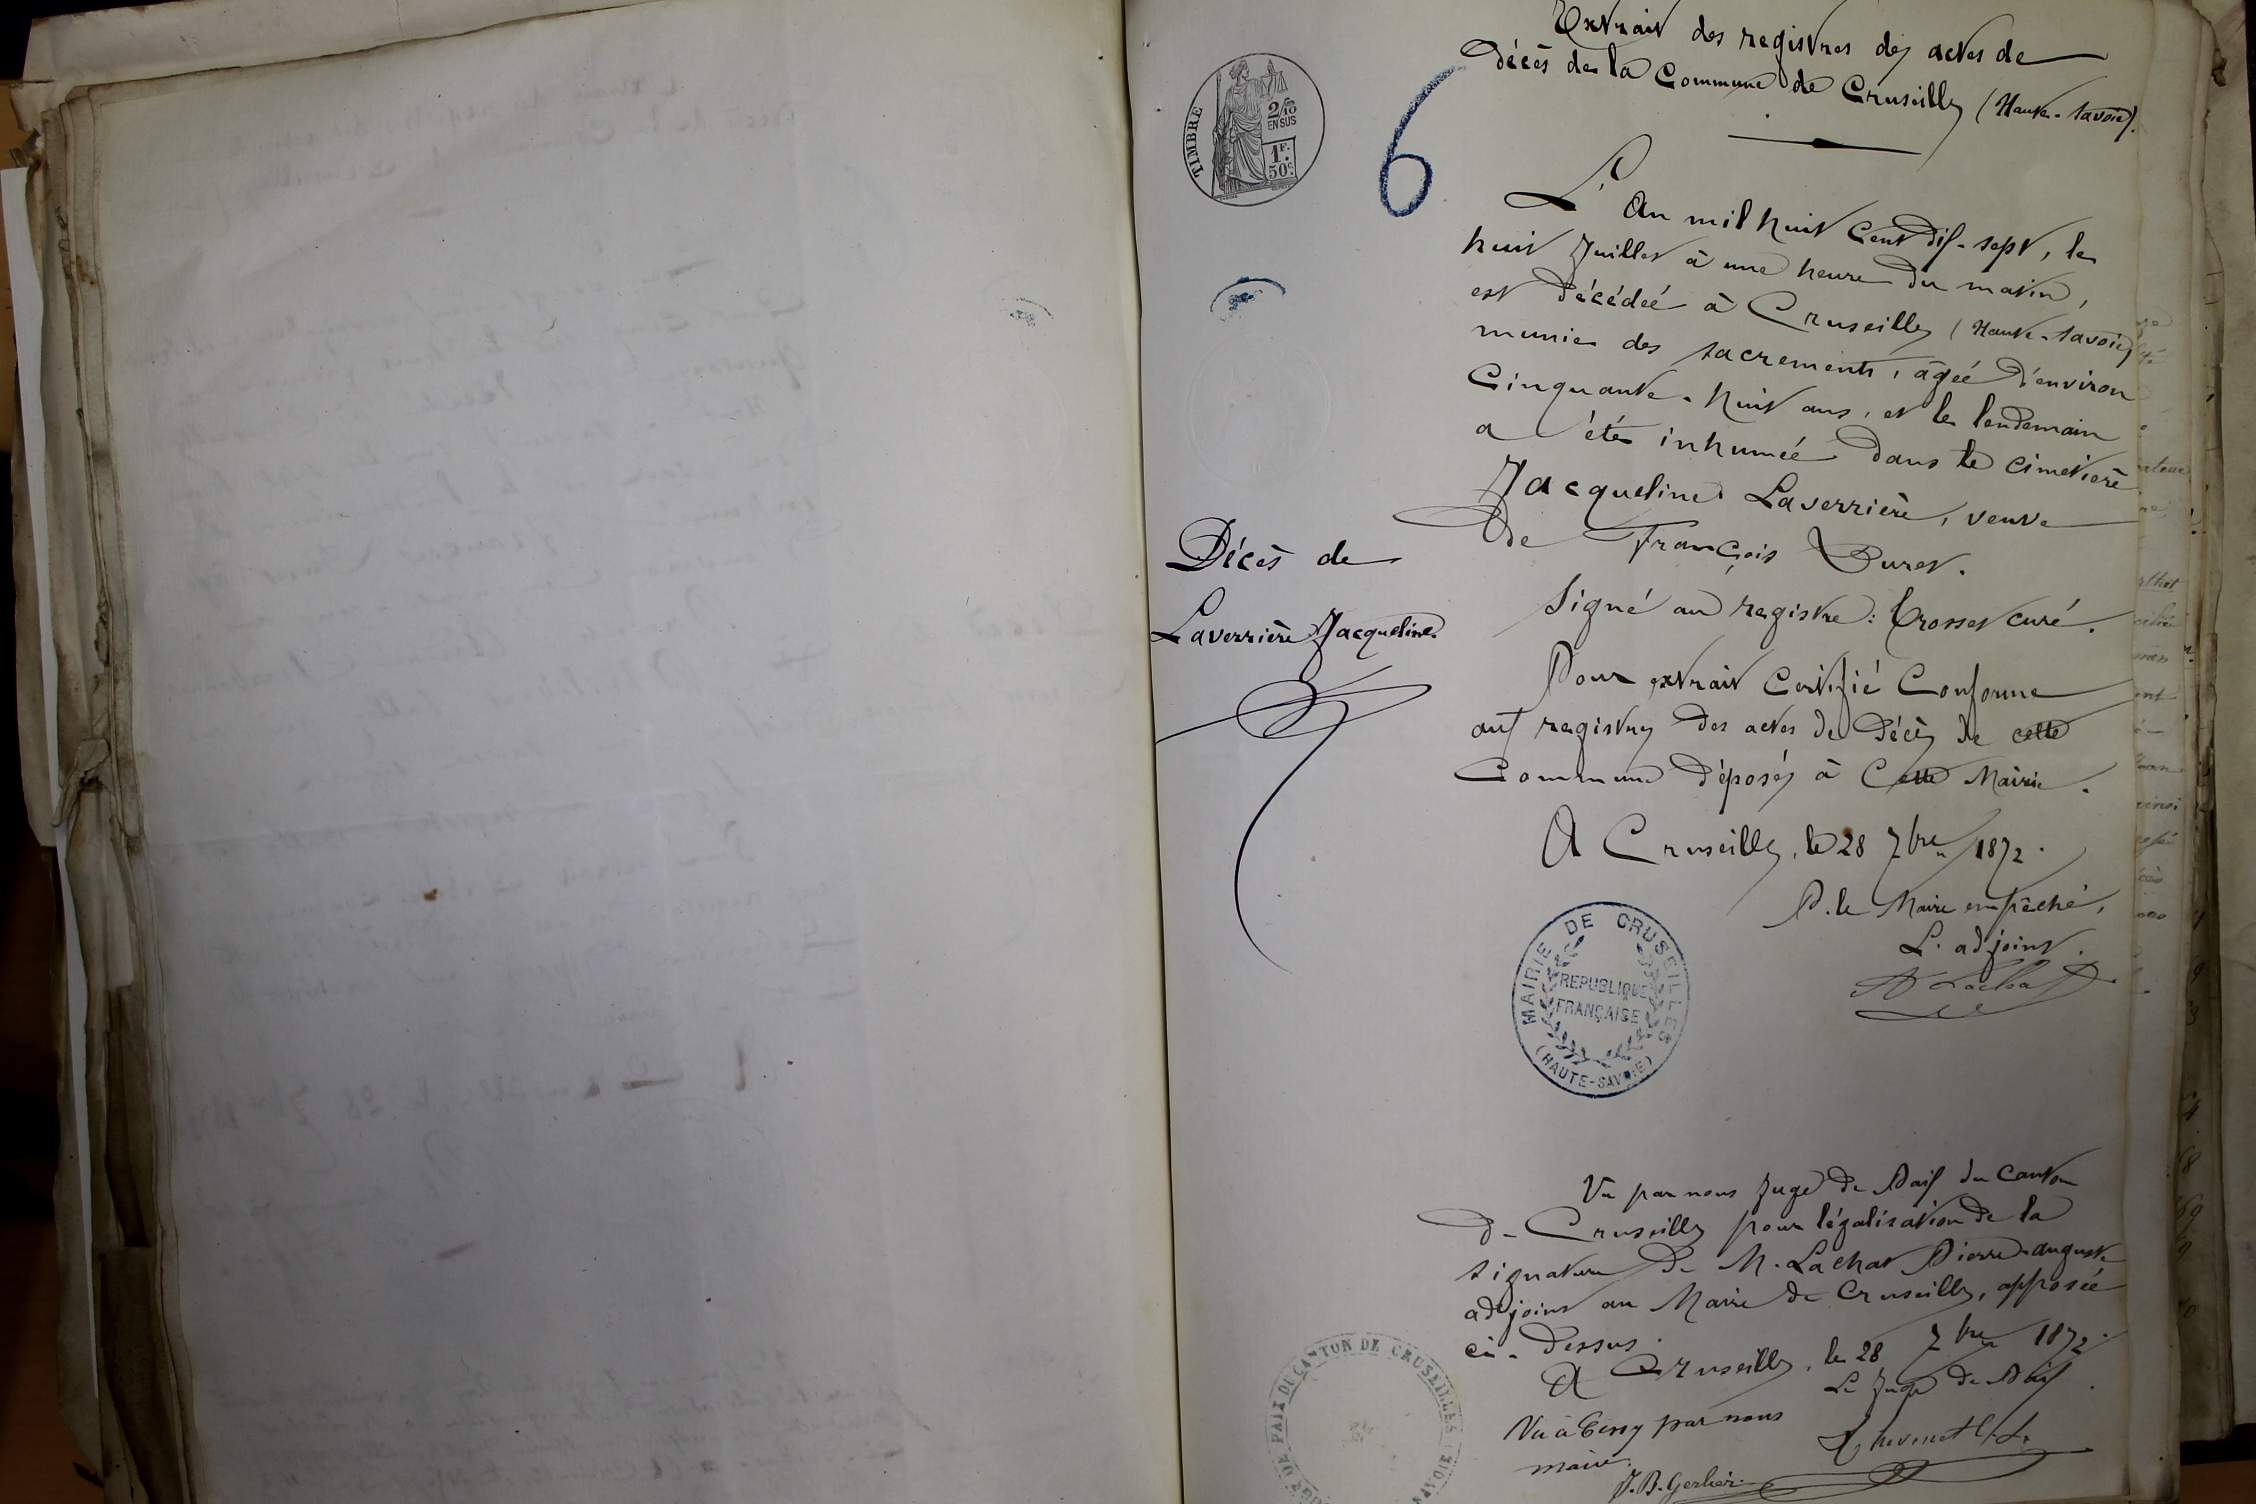 Extrait des registres des actes de
décès de la Commune de Cruseilles (Haute-Savoie).
TIMBRE
2/10
EN SUS
1F.
50c.
6
L'An mil huit Cent dix-sept, le
huit Juillet à une heure du matin,
est décédée à Cruseilles (Haute-Savoie)
munie des sacrements, âgée d'environ
Cinquante-huit ans, et le lendemain
a été inhumée dans le cimetière
Jacqueline Laverrière, veuve
de François Buret.
Décès de
Laverrière Jacqueline
Signé au registre : Crosset curé.
Pour extrait Certifié Conforme
aux registres des actes de décès de cette
Commune déposés à Cette Mairie.
A Cruseilles, le 28 7bre 1872.
P. le Maire empêché,
L'adjoint.
A Lachat
MAIRIE DE CRUSEILLES
REPUBLIQUE
FRANÇAISE
(HAUTE-SAVOIE)
Vu par nous Juge de Paix du Canton
de Cruseilles pour légalisation de la
signature de M. Lachat Pierre-auguste
adjoint au Maire de Cruseilles, apposée
ci-dessus.
A Cruseilles, le 28 7bre 1872.
Le Juge de Paix
DE PAIX DU CANTON DE CRUSEILLES
Vu à par nous
maire.
J. B. Gerlier